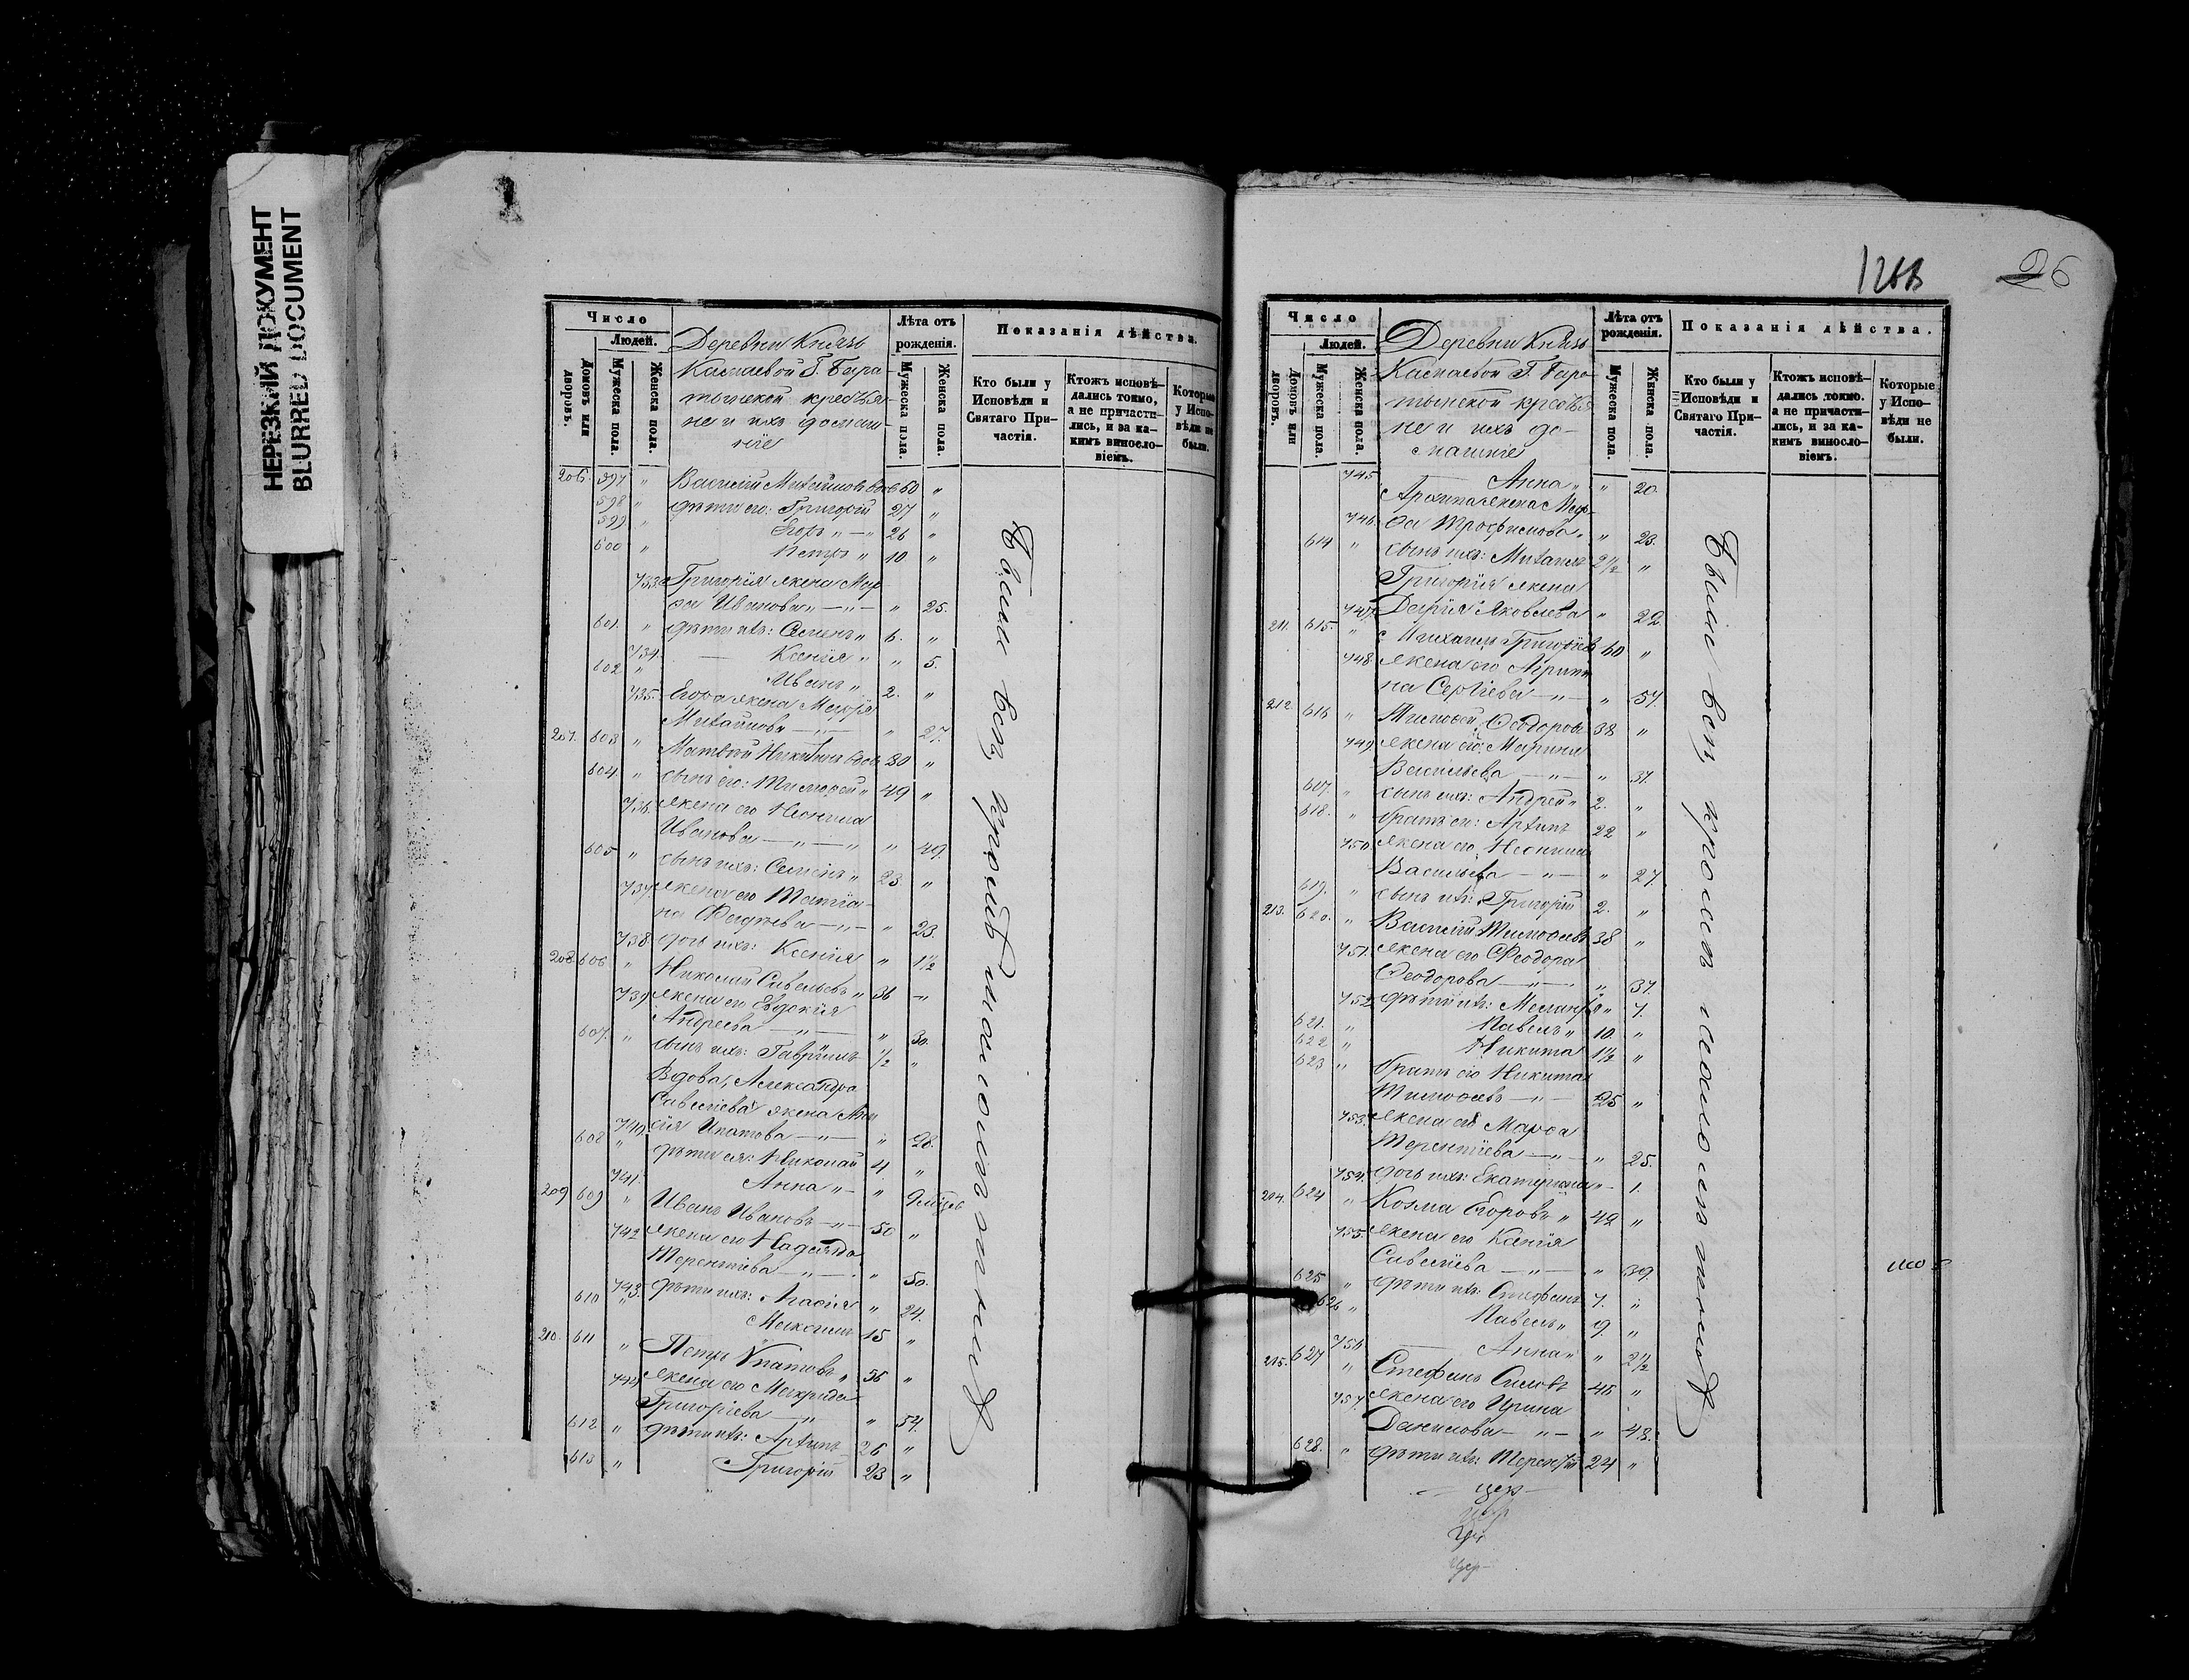 НЕРЕЗКИЙ ДОКУМЕНТ
BLURRED DOCUMENT
Число
Людей.
Домовъ или дворовъ.
Мужеска пола.
Женска пола.
Деревни Князь
Касшаевой Г. Бара-
тынской крестья-
не и ихъ домаш-
ніе
Лѣта отъ рожденія.
Мужеска пола.
Женска пола.
Показанія дѣйства.
Кто были у Исповѣди и Святаго При-
частія.
Ктожъ исповѣ-
дались токмо,
а не причасти-
лись, и за ка-
кимъ винослo-
віемъ.
Которые
у Испо-
вѣди не
были.
206. 597 " Василій Михайловъ вдов 60 "
598 " дѣти его: Григорій 27 "
599 " Егоръ " — " 26 "
600 " Петръ " 10 "
733 Григорія жена Мар-
ѳа Иванова " — " — " 25.
601. " дѣти ихъ: Семенъ " 6. "
734. — Ксенія " " 5.
602 " Иванъ " 2. "
735. Егора жена Марія
Михайлова — " — " 27.
207. 603 " Матвѣй Никитинъ вдов 80 "
604. " сынъ его: Тимоѳей " 49 "
736. жена его Неонила
Иванова — " — " " 49.
605 " сынъ ихъ: Семенъ " 23 "
737. жена его Татіа-
на Фадѣева — " — " 23.
738. дочь ихъ: Ксенія " 1½
208 606 " Николай Савельевъ " 36 "
739 жена его Евдокія
Андреева — " — " 30.
607. " сынъ ихъ: Гавріилъ ½ "
Вдова, Александра
Савельева жена
740 Ипатова — " — " 28.
608 " дѣти ея: Николай 4. "
741. Анна " — "
209 609 " Иванъ Ивановъ — " — 50 "
742 жена его Надежда
Терентіева — " — " 50.
743. дѣти ихъ: Агаѳія " 24.
610 " Максимъ 15 "
210. 611 " Петръ Ипатовъ " 56 "
744 жена его Макрида
Григоріева — " " 54.
612 " дѣти ихъ: Архипъ 26 "
613 " Григорій 23 "
Были всѣ, кромѣ малолѣтнихъ
26
Число
Людей.
Домовъ или дворовъ.
Мужеска пола.
Женска пола.
Деревни Князь
Касшаевой Г. Бара-
тынской крестья
не и ихъ до-
машніе
Лѣта отъ рожденія.
Мужеска пола.
Женска пола.
Показанія дѣйства.
Кто были у
Исповѣди и
Святаго При-
частія.
Ктожъ исповѣ-
дались токмо.
а не причасти-
лись, и за ка-
кимъ винослo-
віемъ.
Которые
у Испо-
вѣди не
были.
745 — Анна " " 20.
Архипа жена Мар-
746. ѳа Трофимова " " 23.
614 " сынъ ихъ: Михаилъ 2½ "
Григорія жена
747. Дарія Яковлева " 22
211. 615. " Михаилъ Григорьевъ 60 "
748. жена его Агрипи
на Сергіева — " — " 57.
212. 616 " Тимоѳей Ѳеодоровъ 38 "
749. жена его: Марина
Васильева — " — " 37.
607. " сынъ ихъ: Андрей " 2. "
618. " братъ его: Архипъ 22 "
750 жена его Неонила
Васильева — " — " 27.
619. " сынъ ихъ: Григорій 2. "
213. 620. " Василій Тимоѳеевъ 38 "
751. жена его Ѳеодора
Ѳеодорова — " — " 37.
752. дѣти ихъ: Меланія " 7.
621. " Павелъ " 10. "
622 " Никита 1½ "
623 " братъ его Никита
Тимоѳеевъ — " — 25 "
753. жена его Марѳа
Терентіева — " — " 25.
754. дочь ихъ: Екатерина " — 1.
214. 624 " Козма Егоровъ " 42 "
755. жена его Ксенія
Савеліева — " — " 39
625 " дѣти ихъ: Стефанъ 7. "
626 " Павелъ " 9. "
756 — Анна " " 2½
215. 627 " Стефанъ Силовъ 46 "
757. жена его Ирина
Данилова — " — " 48.
628. " дѣти ихъ: Терентій 24 "
Были всѣ, кромѣ малолѣтнихъ